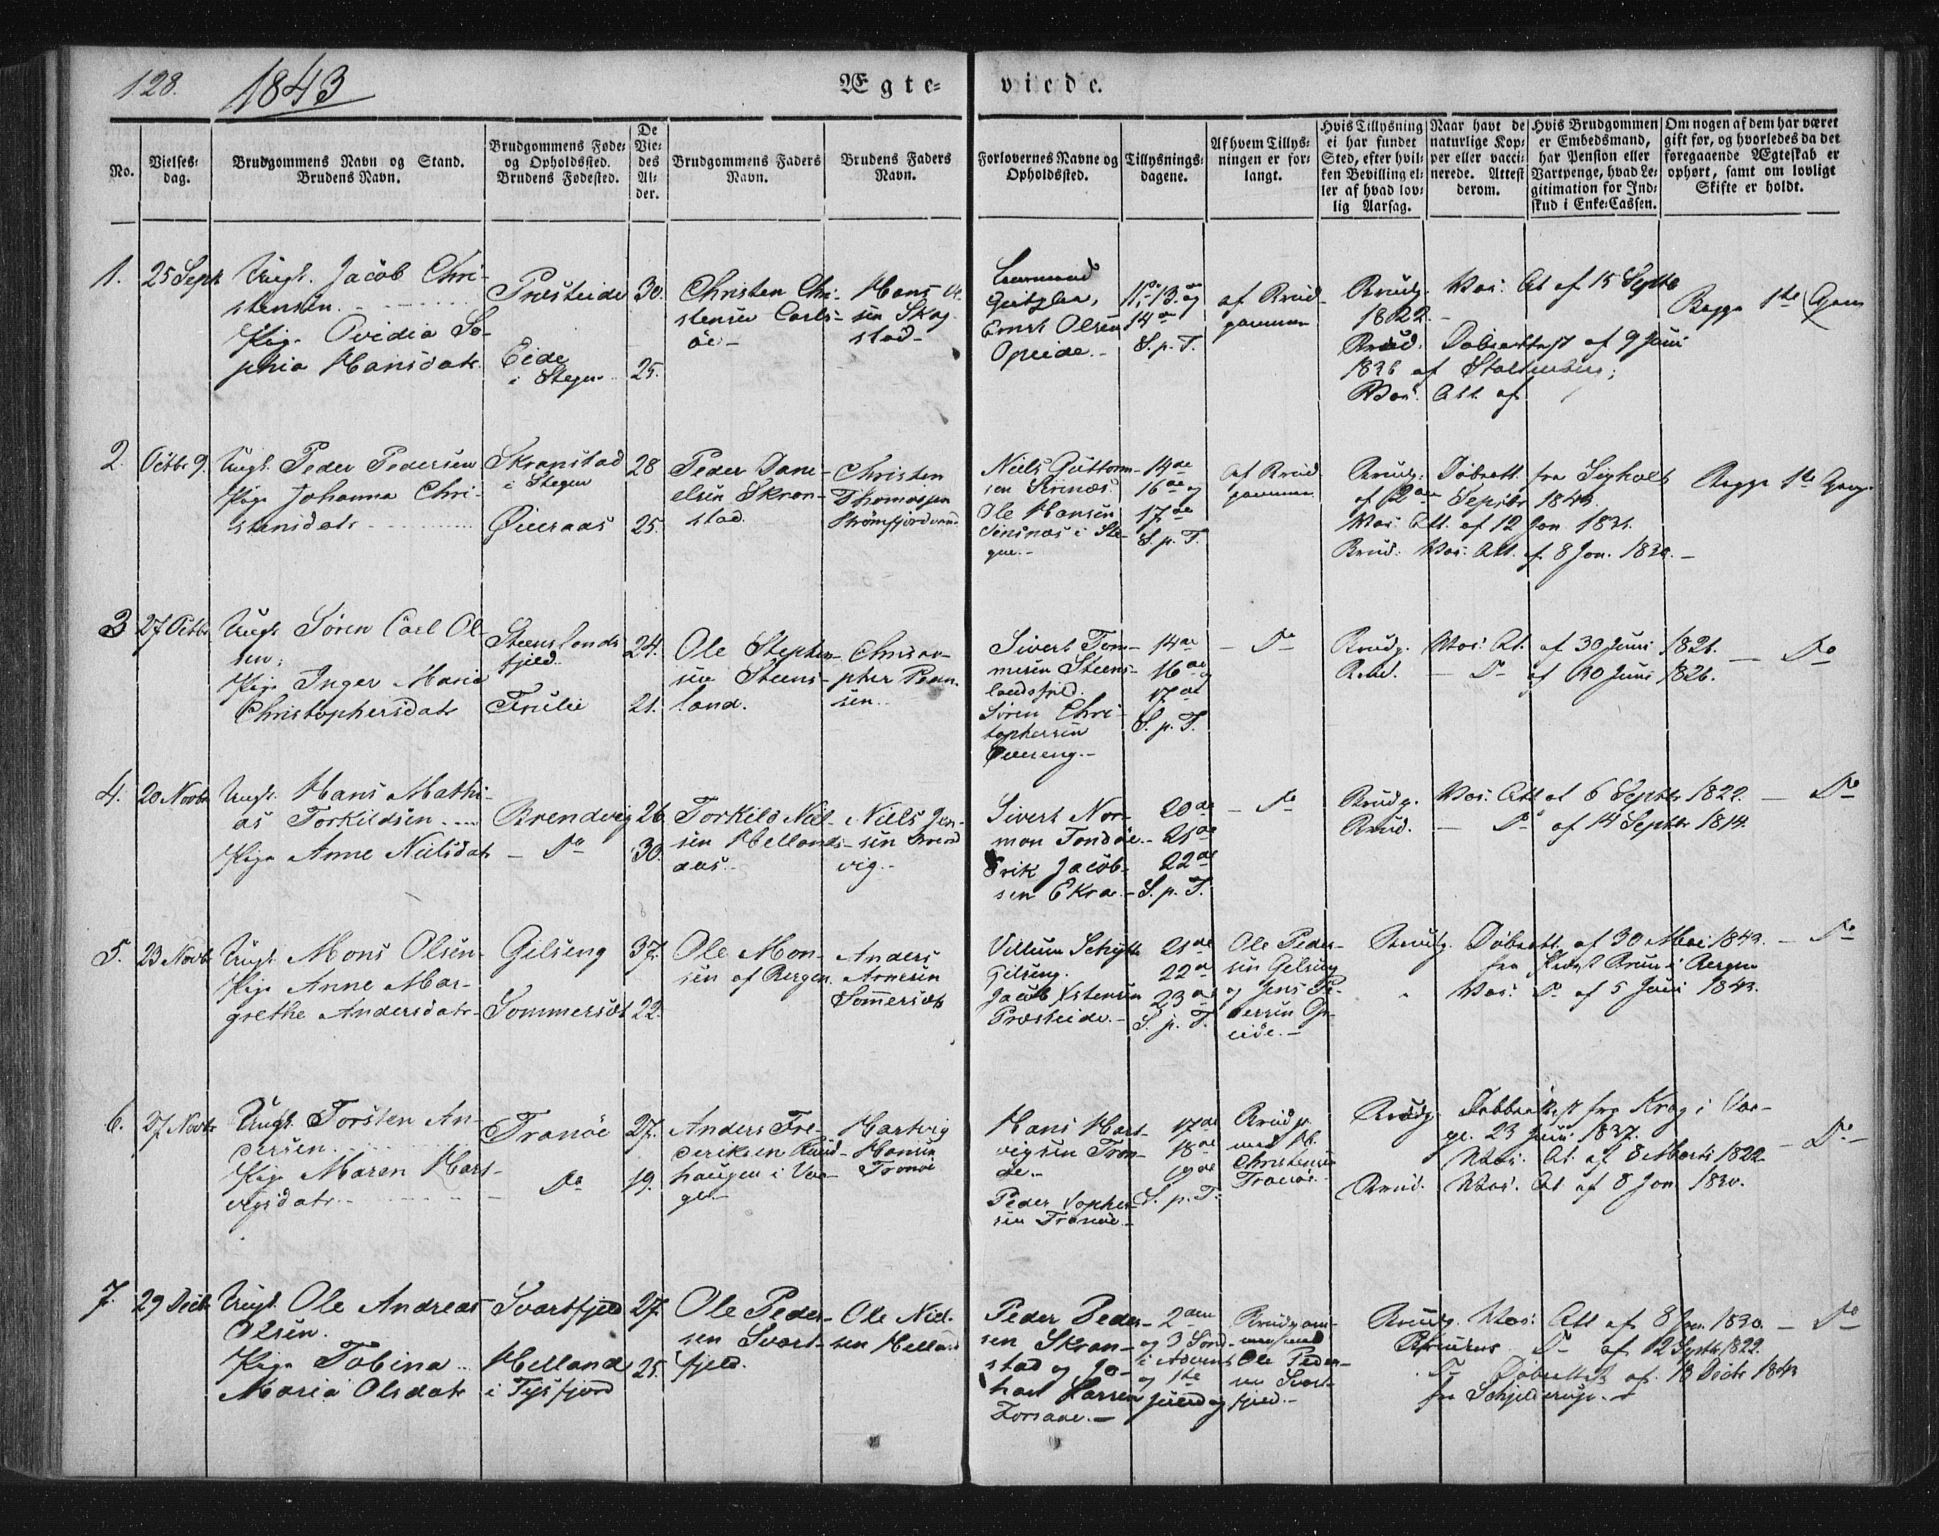 128.
1843
Ægte-
viede.
No.
Vielses-
dag.
Brudgommens Navn og Stand.
Brudens Navn.
Brudgommens Føde-
og Opholdssted.
Brudens Fødested.
De
Vie-
des
Al-
der.
Brudgommens Faders
Navn.
Brudens Faders
Navn.
Forlovernes Navne og
Opholdssted.
Tillysnings-
dagene.
Af hvem Tillys-
ningen er for-
langt.
Hvis Tillysning
ei har fundet
Sted, efter hvil-
ken Bevilling el-
ler af hvad lov-
lig Aarsag.
Naar havt de
naturlige Kop-
per eller vacci-
nerede. Attest
derom.
Hvis Brudgommen
er Embedsmand,
har Pension eller
Vartpenge, hvad Le-
gitimation for Ind-
skud i Enke-Cassen.
Om nogen af dem har været
gift før, og hvorledes da det
foregaaende Ægteskab er
ophørt, samt om lovligt
Skifte er holdt.
1.
25 Sept
Ungk. Jacob Chri-
stensen.
Pige Ovidia So-
phia Hansdatr
Præsteide
Eide
i Stegen
30.
25.
Christen Chri-
stensen Carls-
öe
Hans
sen Skog
stad
Geitgla,
Ernst Olsen
Opeide.
11te, 13de og
14de
S. p. T.
af Brud-
gommen
Brudg. Vac. At af 15 Septb
1822.
Brud. Døbeattest af 9 Juni
1836 af Stoltenberg;
Vac. Att. af
Begge 1te Gang
2.
Octbr 9.
Ungk. Peder Pedersen
Pige Johanna Chri-
stensdatr
Skranstad
i Stegen
28
25.
Peder Dani-
elsen Skran-
stad.
Christen
Thomassen
Niels Guttorm-
sen
Ole Hansen
i Ste-
gen
14de
16de og
17de
S. p. T.
af Brud
gommen
Brudg. Døbeatt. fra
af Septbr 1843.
Vac. Att. af 12 Jan. 1831.
Brud. Vac. Att. af 8 Jan. 1830.
Begge 1te Gang
3
27 Octbr
Ungk. Søren Carl Ol-
sen,
Pige Inger Maria
Christophersdatr
Steenslands
fjeld.
24.
21.
Ole Stephen-
sen Steens-
land.
Christo-
pher
sen
Sivert Tom-
mesen Steens-
landsfjeld.
Søren Chri-
tophersen
14de
16de og
17de
S. p. T.
Do
Brudg. Vac. At. af 30 Juni 1821.
Brud. Do af 30 Juni 1826.
Do
4.
20 Novbr
Ungk. Hans Mathi-
as Torkildsen
Pige Anne Nielsdatr
Brendvig
Do
26.
30.
Torkild Niel-
sen Hellands-
aas.
Niels Jen-
sen Brend
vig.
Sivert Nor-
man Tondöe
Erik Jacob-
sen Ekra
20de
21de
22de
S. p. T.
Do
Brudg. Vac. Att af 6 Septbr 1822.
Brud. Do af 14 Septbr 1814.
Do
5.
23 Novbr
Ungk. Mons Olsen
Pige Anne Mar-
grethe Andersdatr
Gilseng
Sommersæt
37.
22.
Ole Mon-
sen af Bergen
Anders
Arnesen
Somersæt
Villum Schytt
Gilseng.
Jacob Xstensen
Præsteide.
21de
22de
23de
S. p. T.
Ole Peder-
sen Gilseng
og Jens Pe-
dersen Op-
eide.
Brudg. Døbeatt. af 30 Mai 1843.
fra Brun i Bergen
Vac. Do af 5 Juni 1843.
Do
6.
27 Novbr
Ungk. Torsten An-
dersen
Pige Maren Hart-
vigsdatr
Tranöe
Do
27.
19.
Anders Fre-
deriksen Rund-
haugen i Vaa-
ge
Hartvig
Hansen
Tranöe
Hans Hart-
vigsen Tran-
öe
Peder Xopher-
sen Tranöe
17de
18de
19de
S. p. T.
Brudg.
med
Christensen
Tranöe.
Brudg. Døbeattest fra Krog i Vaa-
ge 23 Juni 1837.
Vac. At. af 8 Marts 1822
Brud. Vac. At af 8 Jan 1830.
Do
7.
29 Decbr
Ungk. Ole Andreas
Olsen.
Pige Tobina
Maria Olsdatr
Svartfjeld
Helland
i Tysfjord
27.
25.
Ole Peder-
sen Svart-
fjeld.
Ole Niel-
sen Helland
Peder Peder-
sen Skran-
stad og Jo-
han Larsen
Korsnæs.
2den
og 3 Sönd.
i Advent
og 1te
Juledag
Brudgom-
men med
Ole Peder-
sen Svart-
fjeld.
Brudg. Vac. Att af 8 Jan. 1830.
Brudens Do af 12 Septbr 1822.
Do Døbeattest af 13 Decbr 1843
fra Schjelderup.
Do